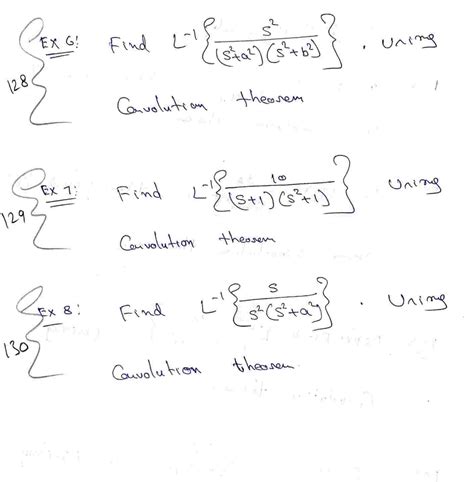 Ex 6: Find L⁻¹{s²/((s²+a²)(s²+b²))}. Using
128
Convolution theorem
Ex 7: Find L⁻¹{10/((s+1)(s²+1))} Using
129
Convolution theorem
Ex 8: Find L⁻¹{s/(s²(s²+a²))}. Using
130
Convolution theorem